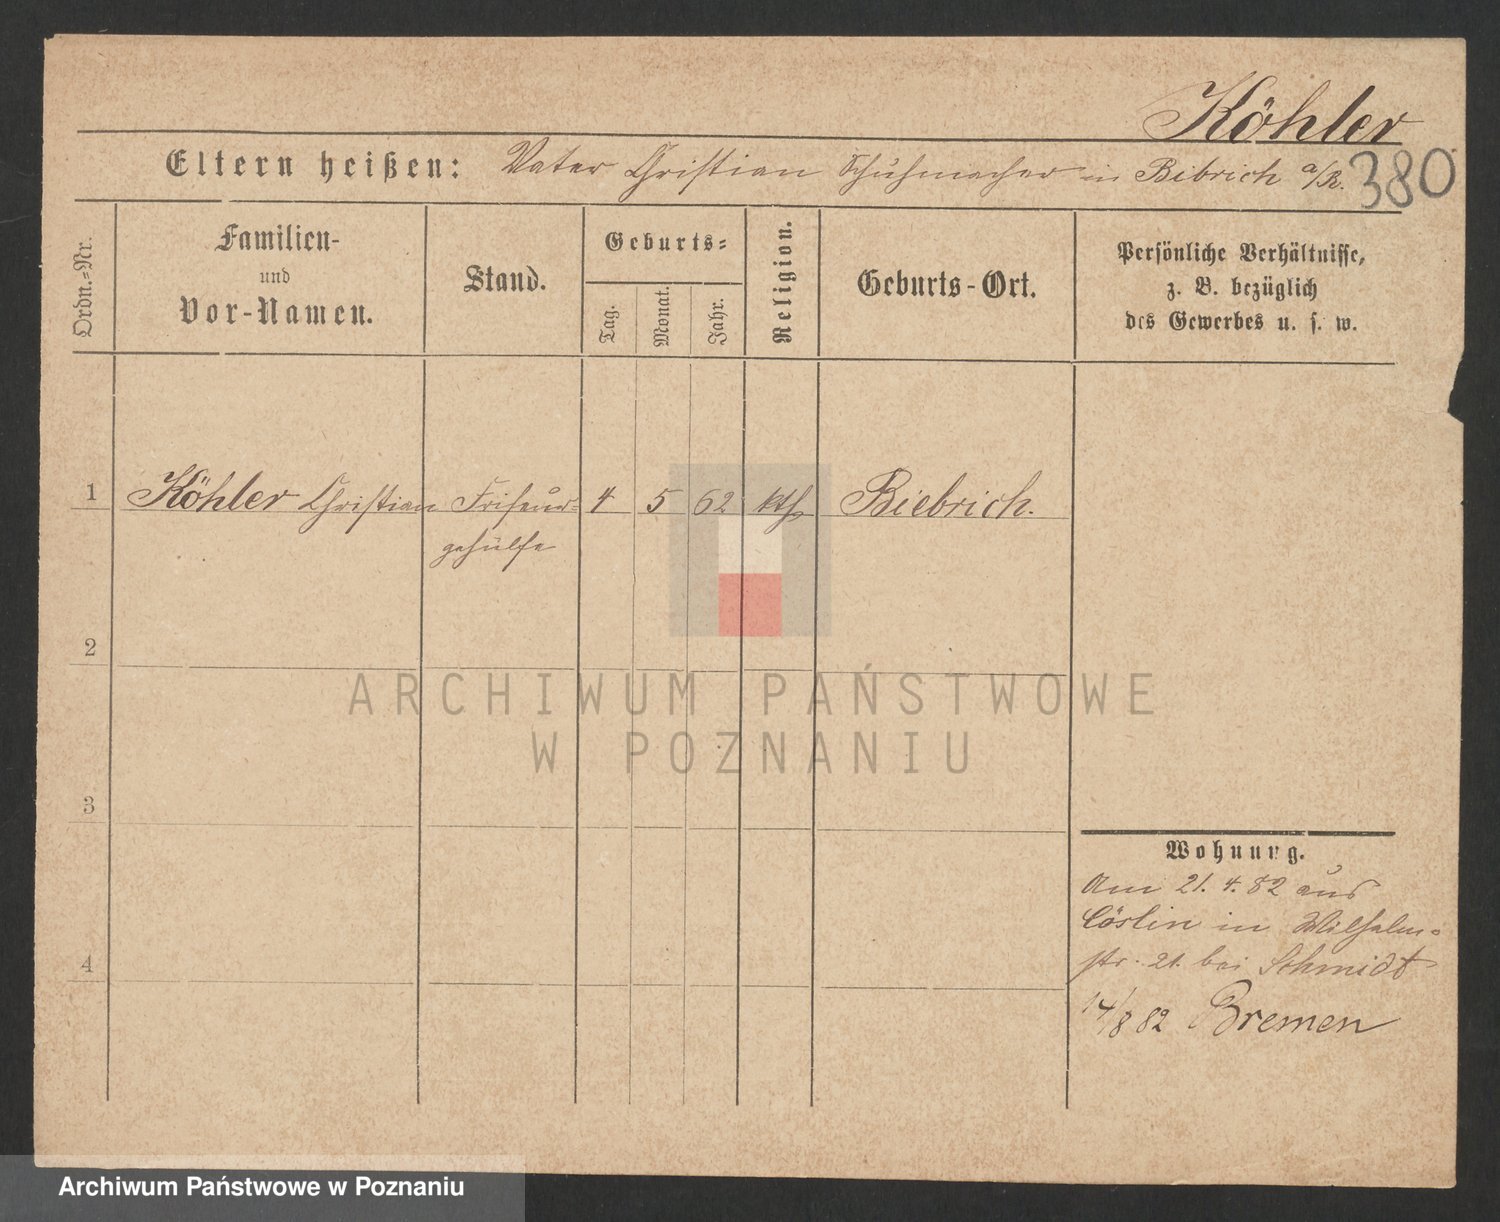 Köhler
Eltern heißen: Vater Christian Schuhmacher in Bibrich a/R. 380
Ordn.=Nr.
Familien-
und
Vor-Namen.
Stand.
Geburts=
Tag.
Monat.
Jahr.
Religion.
Geburts-Ort.
Persönliche Verhältnisse,
z. B. bezüglich
des Gewerbes u. s. w.
1 Köhler Christian Friseur= 4 5 62 kth Biebrich.
gehülfe
2
ARCHIWUM PAŃSTWOWE
W POZNANIU
3
Wohnung.
Am 21. 4. 82 aus
Cöslin in Wilhelm=
str. 21. bei Schmidt
4
14/8 82 Bremen
Archiwum Państwowe w Poznaniu